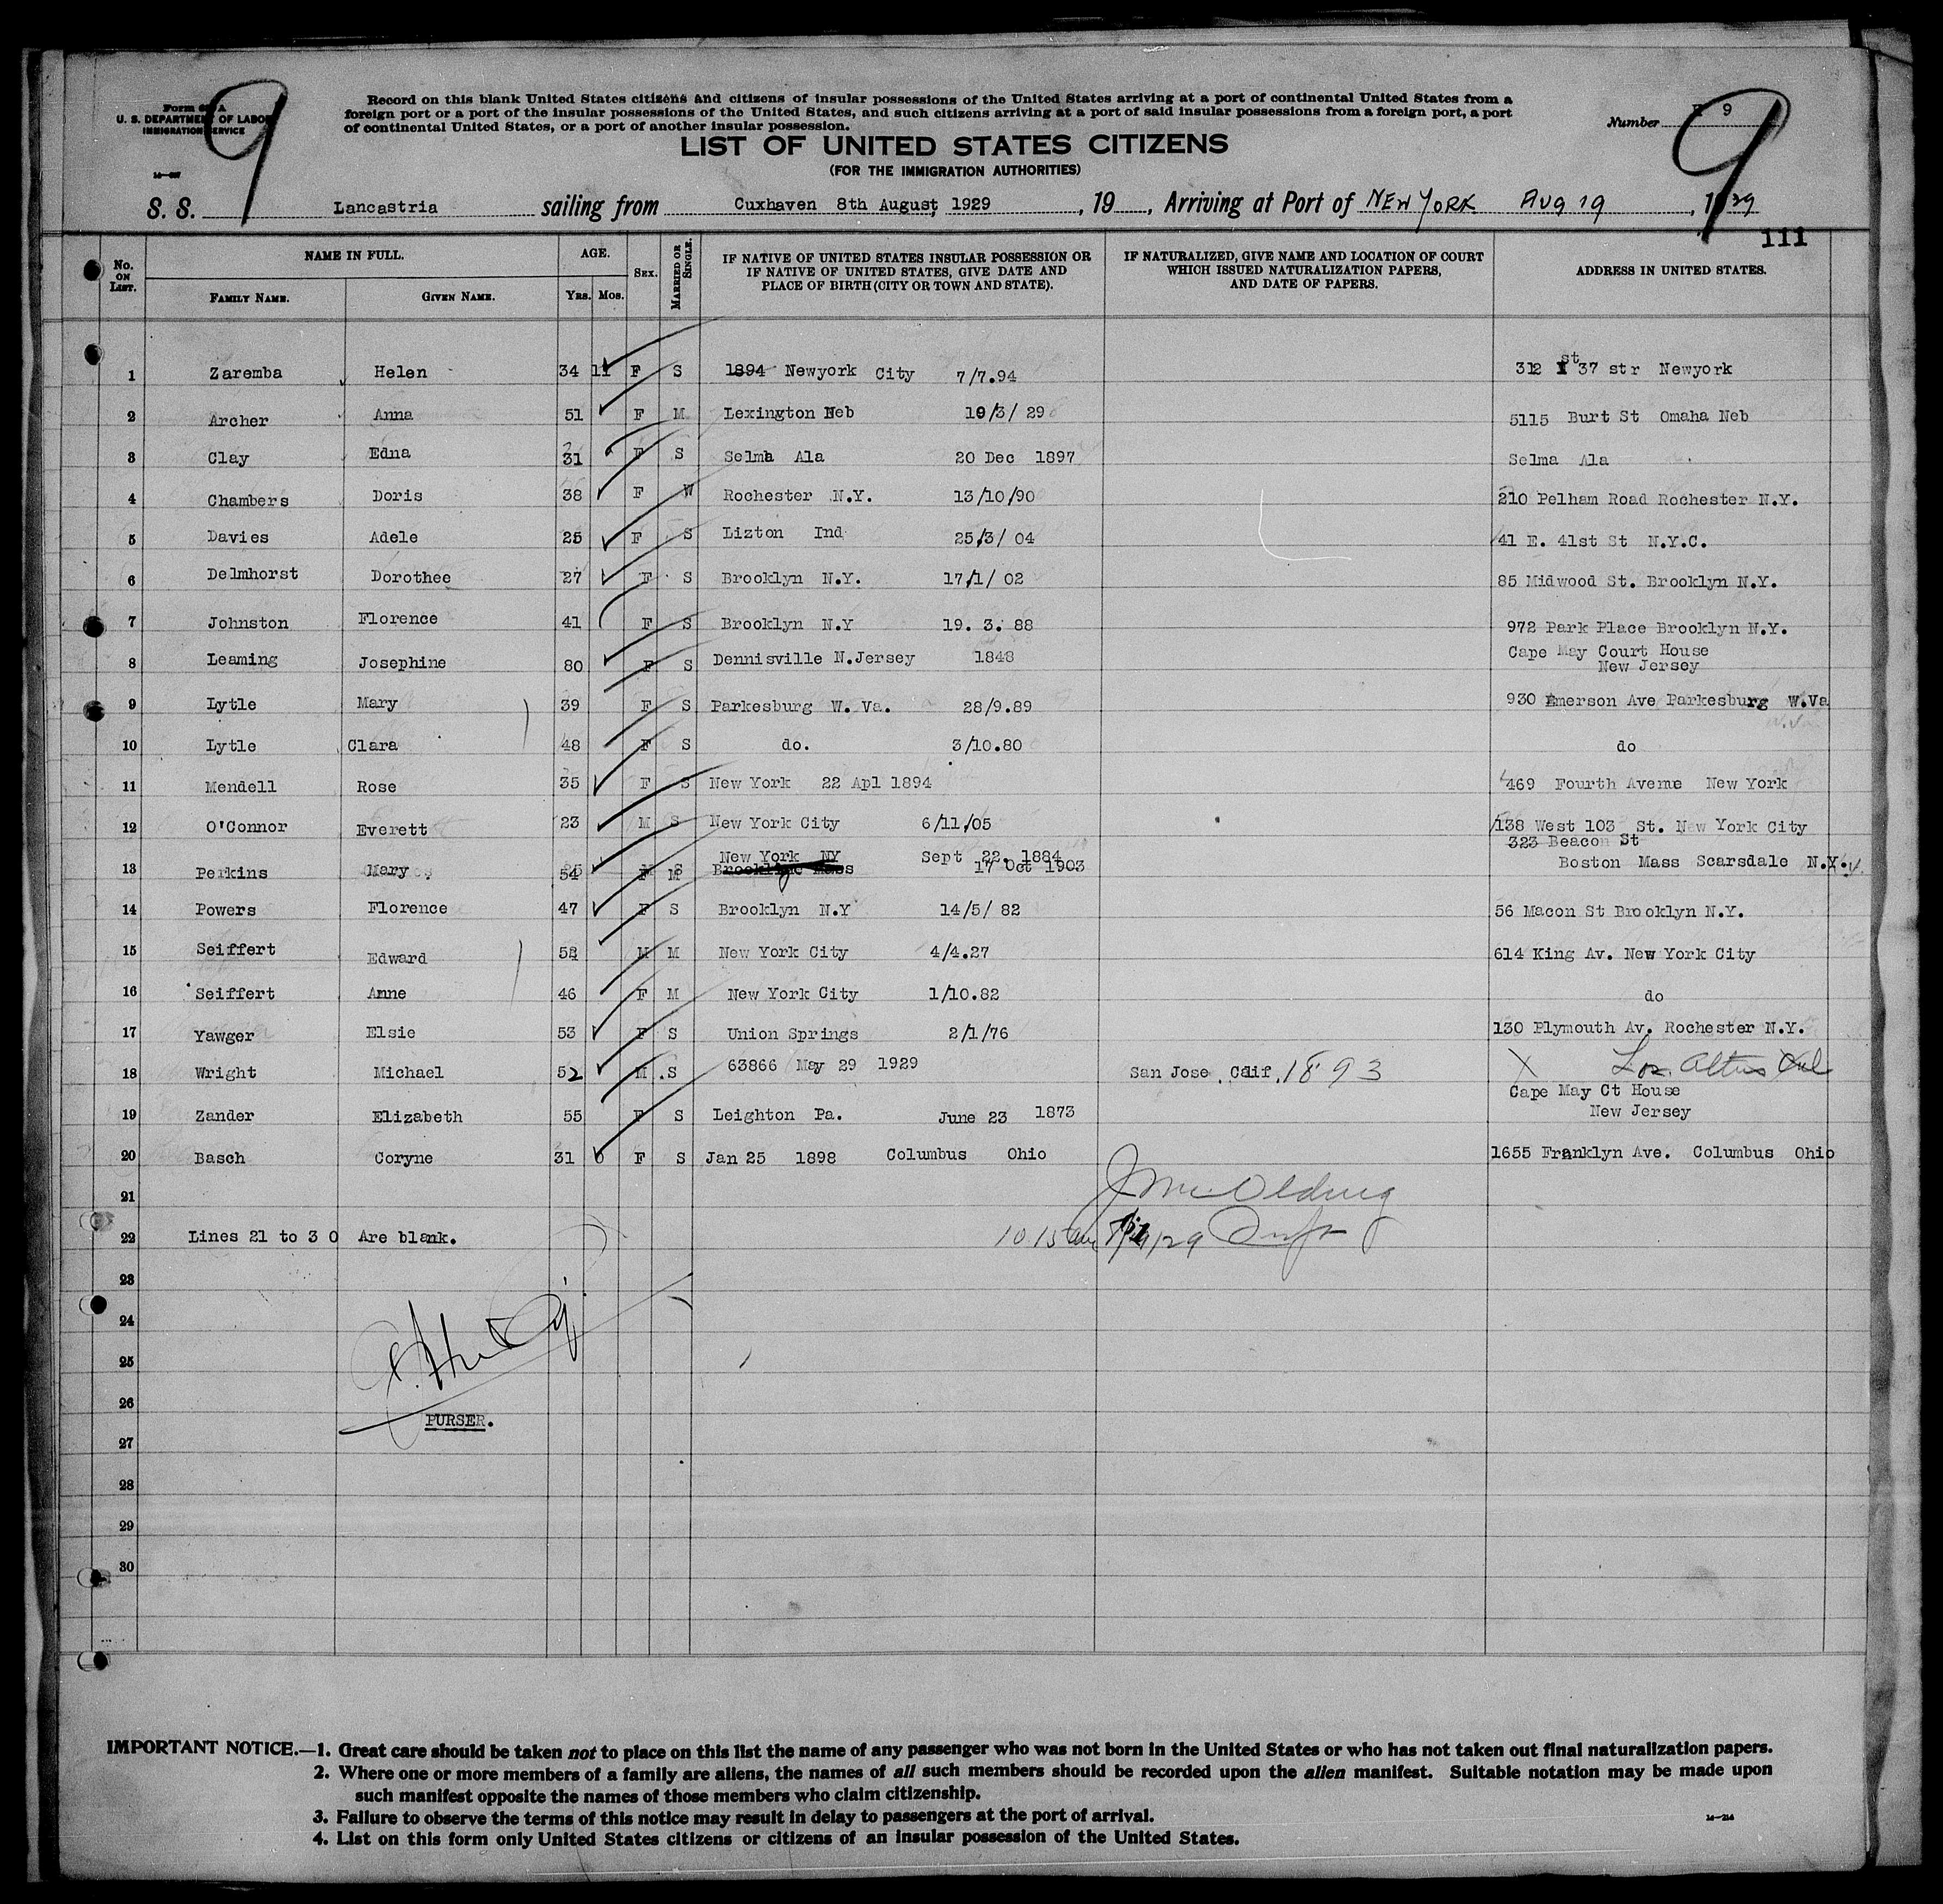 Form 630 A
U. S. DEPARTMENT OF LABOR
IMMIGRATION SERVICE
9
Record on this blank United States citizens and citizens of insular possessions of the United States arriving at a port of continental United States from a
foreign port or a port of the insular possessions of the United States, and such citizens arriving at a port of said insular possessions from a foreign port, a port
of continental United States, or a port of another insular possession.
Number 9
9
LIST OF UNITED STATES CITIZENS
(FOR THE IMMIGRATION AUTHORITIES)
S. S. Lancastria sailing from Cuxhaven 8th August, 1929, 19, Arriving at Port of NEW YORK AUG 19, 1929
111
No. ON LIST. NAME IN FULL. AGE. SEX. MARRIED OR SINGLE. IF NATIVE OF UNITED STATES INSULAR POSSESSION OR IF NATIVE OF UNITED STATES, GIVE DATE AND PLACE OF BIRTH (CITY OR TOWN AND STATE). IF NATURALIZED, GIVE NAME AND LOCATION OF COURT WHICH ISSUED NATURALIZATION PAPERS, AND DATE OF PAPERS. ADDRESS IN UNITED STATES.
FAMILY NAME. GIVEN NAME. YRS. MOS.
1 Zaremba Helen 34 11 F S 1894 Newyork City 7/7.94 312 st 37 str Newyork
2 Archer Anna 51 F M Lexington Neb 10/3/ 29 5115 Burt St Omaha Neb
3 Clay Edna 31 F S Selma Ala 20 Dec 1897 Selma Ala
4 Chambers Doris 38 F W Rochester N.Y. 13/10/90 210 Pelham Road Rochester N.Y.
5 Davies Adele 25 F S Lizton Ind 25/3/ 04 41 E. 41st St N.Y.C.
6 Delmhorst Dorothee 27 F S Brooklyn N.Y. 17/1/ 02 85 Midwood St. Brooklyn N.Y.
7 Johnston Florence 41 F S Brooklyn N.Y 19. 3. 88 972 Park Place Brooklyn N.Y.
8 Leaming Josephine 80 F S Dennisville N.Jersey 1848 Cape May Court House
New Jersey
9 Lytle Mary 39 F S Parkesburg W. Va. 28/9.89 930 Emerson Ave Parkesburg W.Va
10 Lytle Clara 48 F S do. 3/10.80 do
11 Mendell Rose 35 F S New York 22 Apl 1894 469 Fourth Avenue New York
12 O'Connor Everett 23 M S New York City 6/11/05 138 West 103 St. New York City
323 Beacon St
New York NY Sept 22. 1884
13 Perkins Mary 54 F M Brookline Mass 17 Oct 1903 Boston Mass Scarsdale N.Y.
14 Powers Florence 47 F S Brooklyn N.Y 14/5/ 82 56 Macon St Brooklyn N.Y.
15 Seiffert Edward 58 M M New York City 4/4.27 614 King Av. New York City
16 Seiffert Anne 46 F M New York City 1/10.82 do
17 Yawger Elsie 53 F S Union Springs 2/1/76 130 Plymouth Av. Rochester N.Y.
18 Wright Michael 52 M S 63866 May 29 1929 San Jose Calif. 1893 X Los Altos Cal
Cape May Ct House
19 Zander Elizabeth 55 F S Leighton Pa. June 23 1873 New Jersey
20 Basch Coryne 31 6 F S Jan 25 1898 Columbus Ohio 1655 Franklyn Ave. Columbus Ohio
21
22 Lines 21 to 3 0 Are blank. 10 15 am
23
24
25
26
PURSER.
27
28
29
30
IMPORTANT NOTICE.—1. Great care should be taken not to place on this list the name of any passenger who was not born in the United States or who has not taken out final naturalization papers.
2. Where one or more members of a family are aliens, the names of all such members should be recorded upon the alien manifest. Suitable notation may be made upon
such manifest opposite the names of those members who claim citizenship.
3. Failure to observe the terms of this notice may result in delay to passengers at the port of arrival.
4. List on this form only United States citizens or citizens of an insular possession of the United States.
14—214